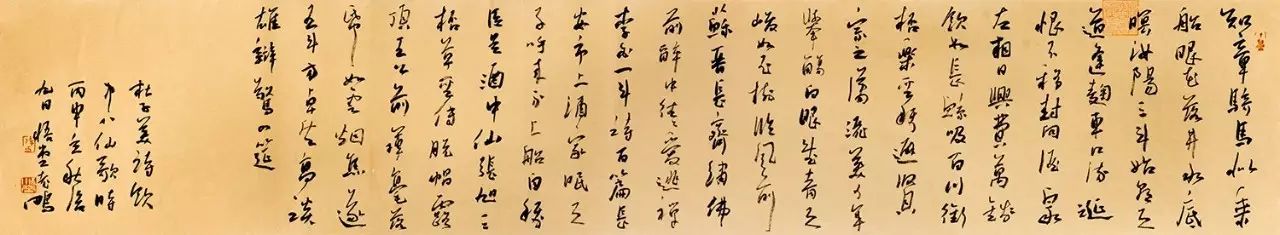 知章騎馬似乘
船眼花落井水底
眠汝陽三斗始朝天
道逢麴車口流涎
恨不移封向酒泉
左相日興費萬錢
飲如長鯨吸百川銜
杯樂聖稱避賢
宗之瀟洒美少年
舉觴白眼望青天
皎如玉樹臨風前
蘇晉長齋繡佛
前醉中往往愛逃禪
李白一斗詩百篇長
安市上酒家眠天
子呼來不上船自稱
臣是酒中仙張旭三
杯草聖傳脫帽露
頂王公前揮毫落
紙如雲烟焦遂
五斗方卓然高談
雄辯驚四筵
杜子美詩飲
中八仙歌時
丙申立秋後
九日悟堂